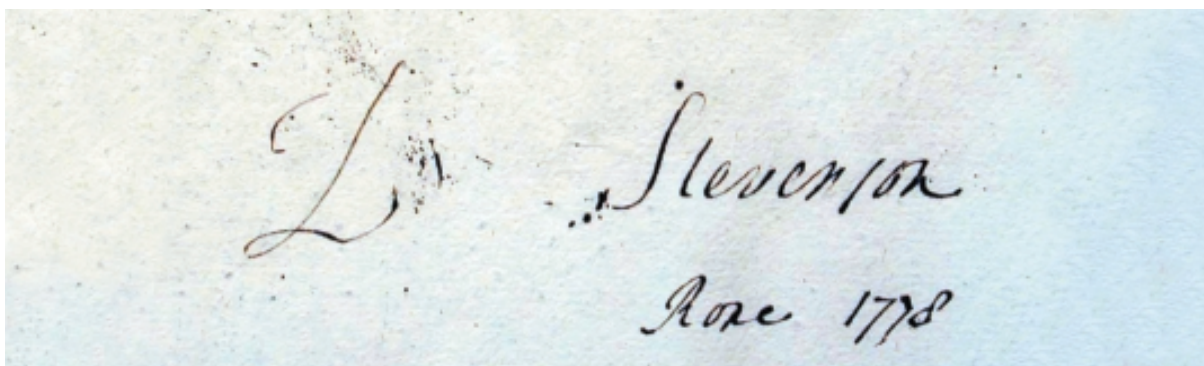 L Stevenson
Rome 1778